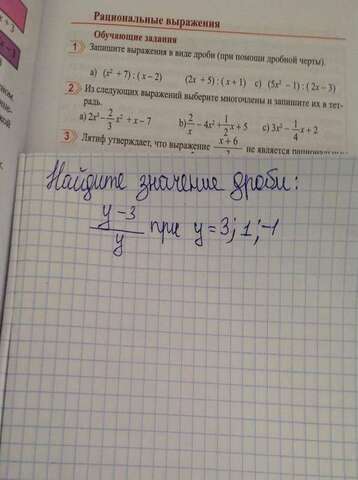 Рациональные выражения
Обучающие задания
1 Запишите выражения в виде дроби (при помощи дробной черты).
а) (x² + 7) : (x – 2) (2x + 5) : (x + 1) c) (5x² – 1) : (2x – 3)
2 Из следующих выражений выберите многочлены и запишите их в тет-
радь.
a) 2x³ – 2/3 x² + x – 7 b) 2/x – 4x² + 1/2 x + 5 c) 3x² – 1/4 x + 2
3 Лятиф утверждает, что выражение x + 6 не является
Найдите значение дроби:
y – 3 / y при y = 3; 1; -1